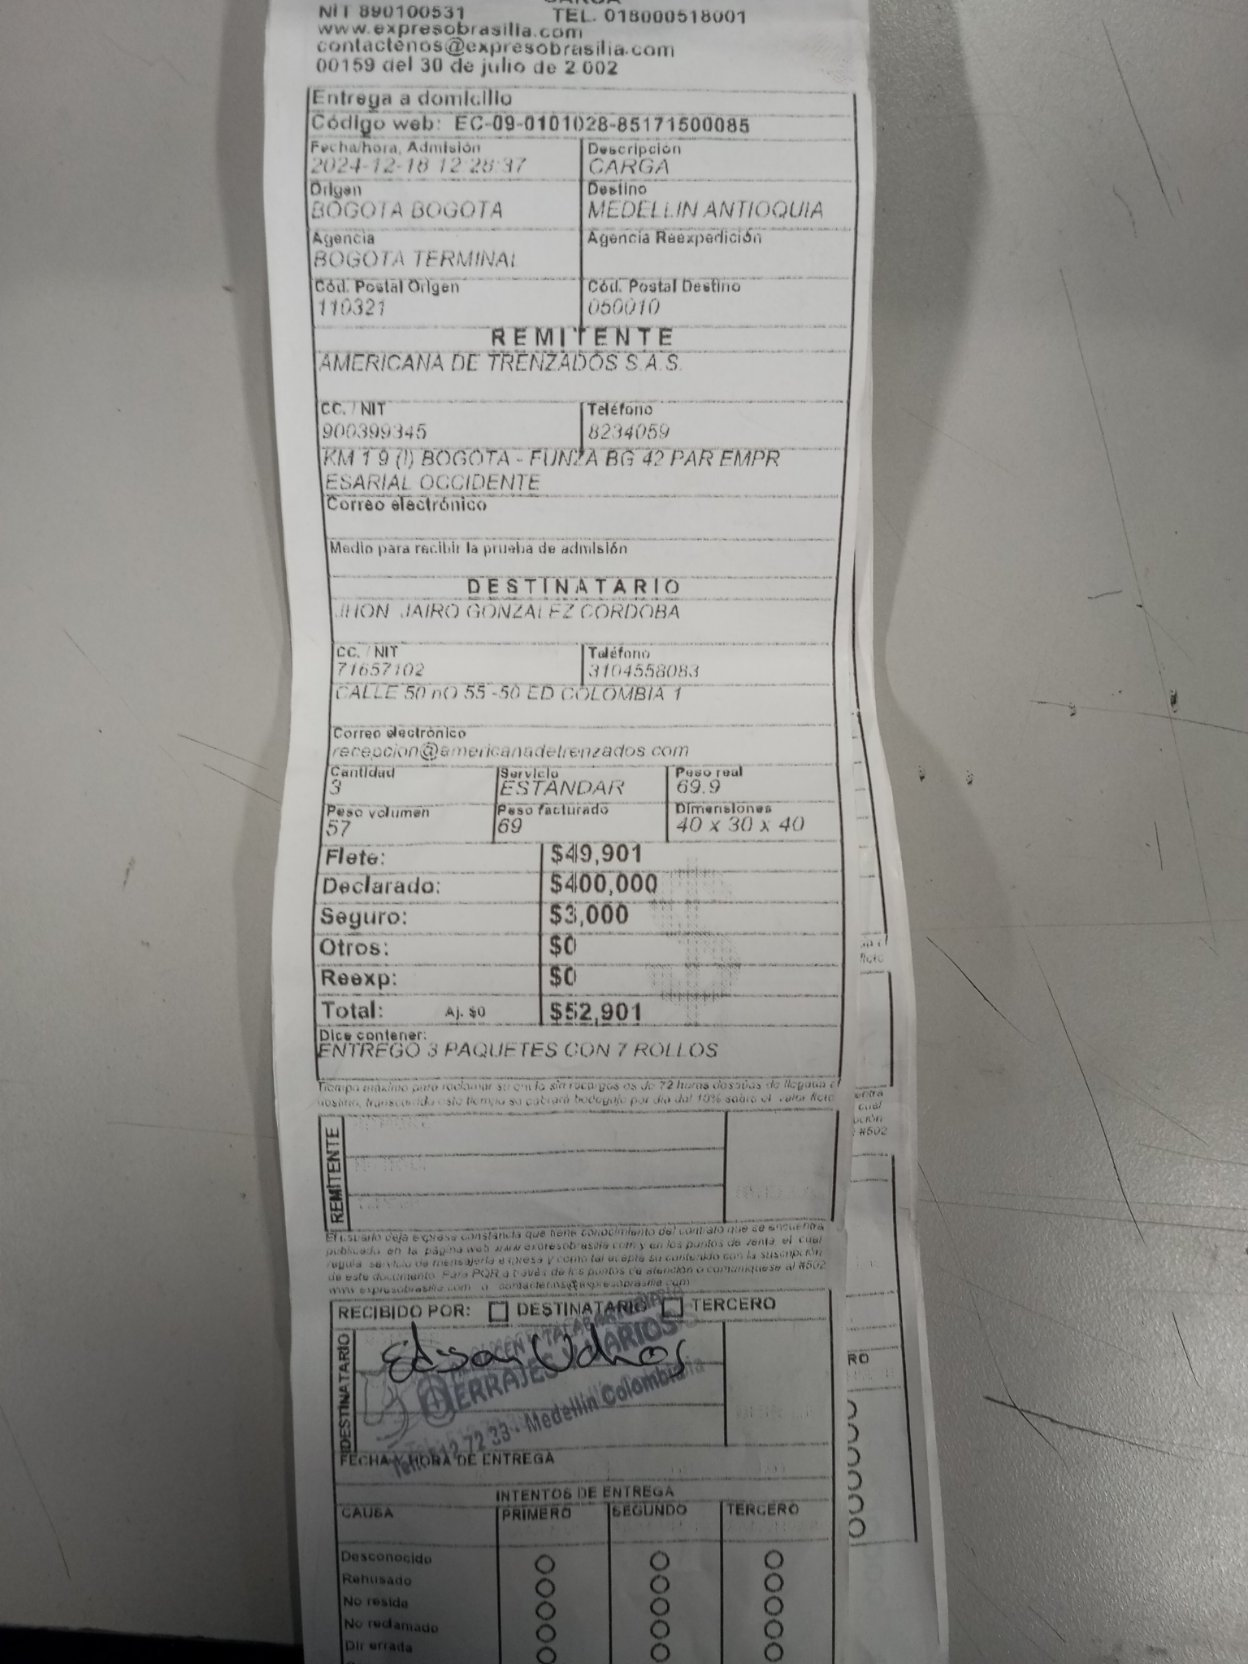 CARGA
NIT 890100531 TEL. 018000518001
www.expresobrasilia.com
contactenos@expresobrasilia.com
00159 del 30 de julio de 2 002
Entrega a domicilio
Código web: EC-09-0101028-85171500085
Fecha/hora, Admisión Descripción
2024-12-18 12:28:37 CARGA
Origen Destino
BOGOTA BOGOTA MEDELLIN ANTIOQUIA
Agencia Agencia Reexpedición
BOGOTA TERMINAL
Cód. Postal Origen Cód. Postal Destino
110321 050010
REMITENTE
AMERICANA DE TRENZADOS S.A.S.
CC. / NIT Teléfono
900399345 8234059
KM 1 9 (I) BOGOTA - FUNZA BG 42 PAR EMPR
ESARIAL OCCIDENTE
Correo electrónico
Medio para recibir la prueba de admisión
DESTINATARIO
JHON JAIRO GONZALEZ CORDOBA
CC. / NIT Teléfono
71657102 3104558083
CALLE 50 nO 55 -50 ED COLOMBIA 1
Correo electrónico
recepcion@americanadetrenzados.com
Cantidad Servicio Peso real
3 ESTANDAR 69.9
Peso volumen Peso facturado Dimensiones
57 69 40 x 30 x 40
Flete: $49,901
Declarado: $400,000
Seguro: $3,000
Otros: $0
Reexp: $0
Total: Aj. $0 $52,901
Dice contener:
ENTREGO 3 PAQUETES CON 7 ROLLOS
Tiempo máximo para reclamar su envío sin recargos es de 72 horas después de llegada a
destino, transcurrido este tiempo se cobrará bodegaje por día del 10% sobre el valor flete
REMITENTE
El usuario deja expresa constancia que tiene conocimiento del contrato que se encuentra
publicado en la página web www.expresobrasilia.com y en los puntos de venta, el cual
regula servicio de mensajería expresa y como tal acepta su contenido con la suscripción
de este documento. Para PQR a través de los puntos de atención o comuníquese al #502
www.expresobrasilia.com o contactenos@expresobrasilia.com
RECIBIDO POR: DESTINATARIO TERCERO
DESTINATARIO
Edison
HERRAJES Y VARIOS
Medellín Colombia
FECHA Y HORA DE ENTREGA
INTENTOS DE ENTREGA
CAUSA PRIMERO SEGUNDO TERCERO
Desconocido
Rehusado
No reside
No reclamado
Dir errada